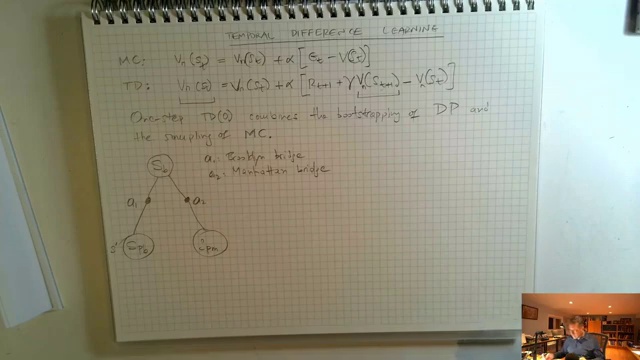 TEMPORAL DIFFERENCE LEARNING
MC: Vπ(St) = Vπ(St) + α [Gt − V(St)]
TD: Vπ(St) = Vπ(St) + α [Rt+1 + γ Vπ(St+1) − Vπ(St)]
One-step TD(0) combines the bootstrapping of DP and
the sampling of MC.
a1: Brooklyn bridge
a2: Manhattan bridge
Sb
a1
a2